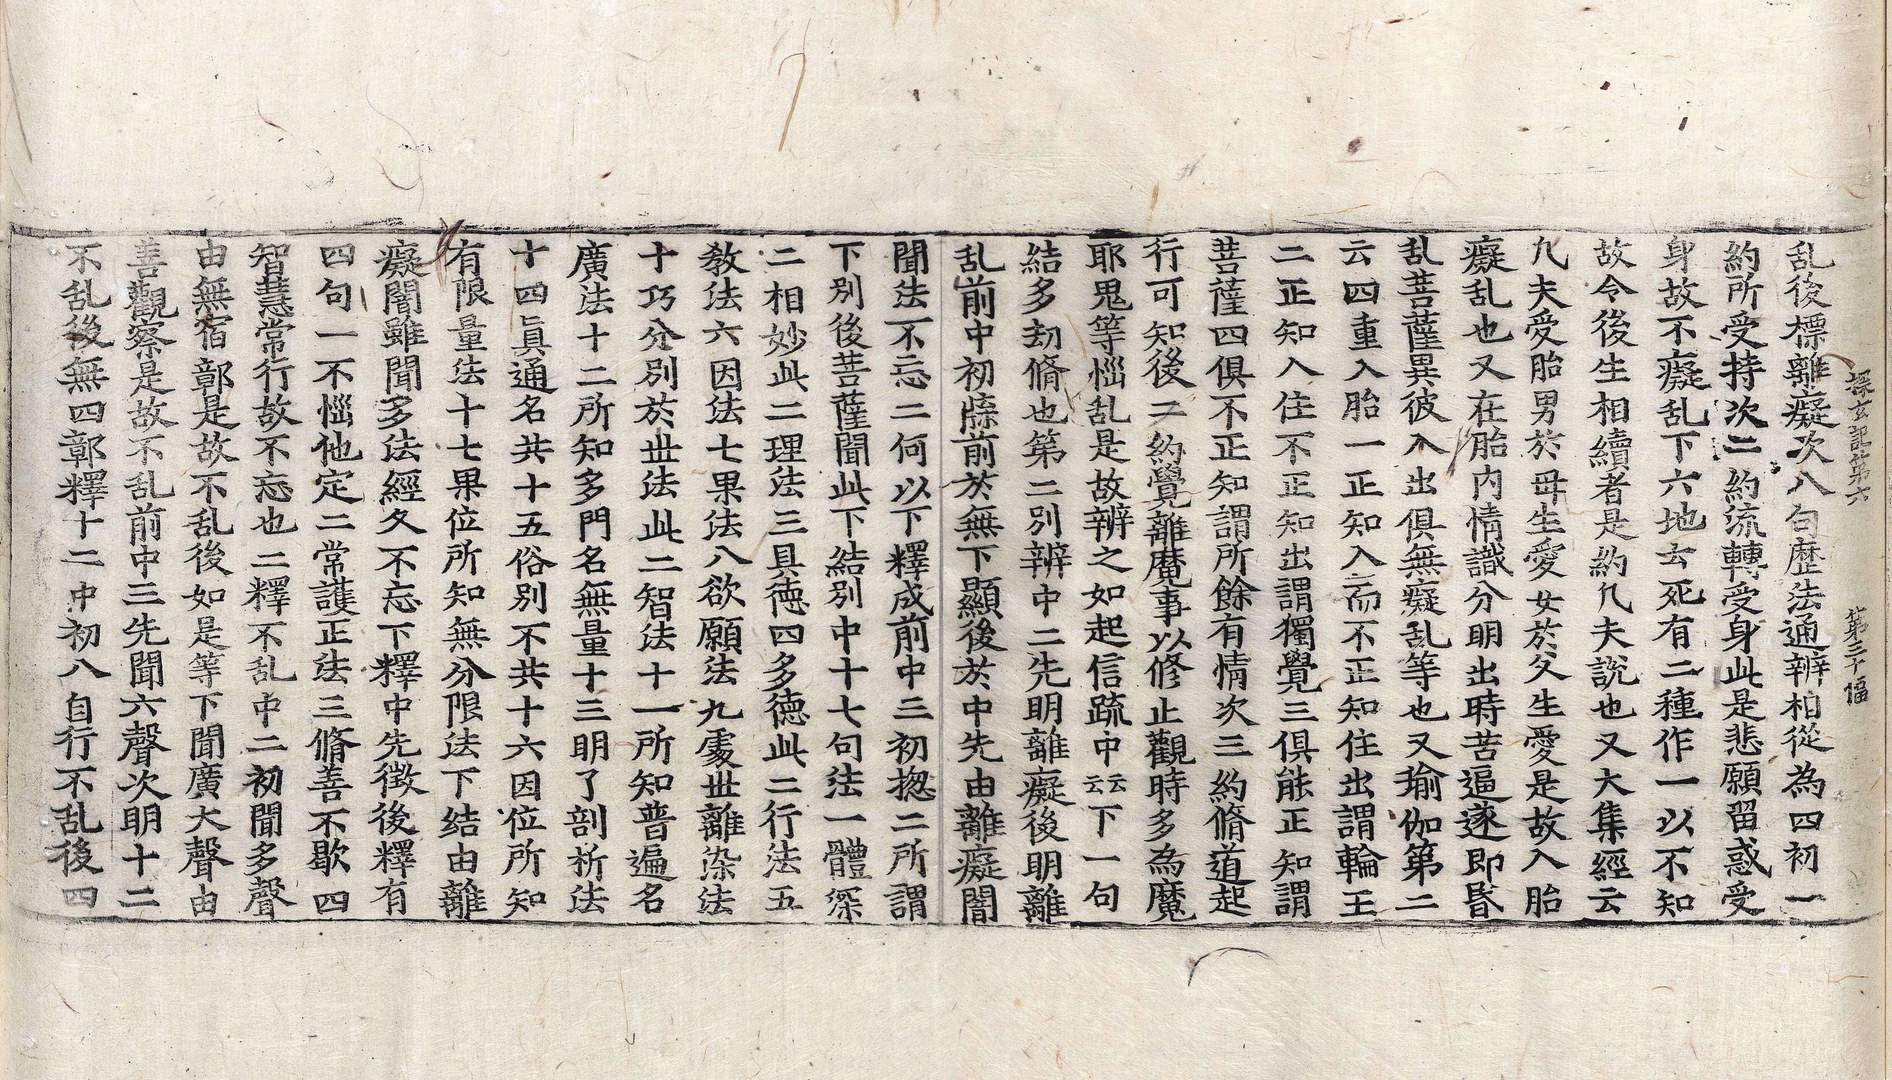 探玄記第六 第三十幅
乱後標離癡次八句歷法通辨相從為四初一
約所受持次二約流轉受身此是悲願留惑受
身故不癡乱下六地云死有二種作一以不知
故令後生相續者是約凡夫說也又大集經云
凡夫愛胎男於母生愛女於父生愛是故入胎
癡乱也又在胎内情識分明出時苦逼遂即昏
乱菩薩異彼入出俱無癡乱等也又瑜伽第二
云四重入胎一正知入而不正知住出謂輪王
二正知入住不正知出謂獨覺三俱能正知謂
菩薩四俱不正知謂所餘有情次三約脩道起
行可知後二約覺離魔事以修止觀時多為魔
耶鬼等惱乱是故辨之如起信疏中云云下一句
結多劫脩也第二別辨中二先明離癡後明離
乱前中初牒前於無下顯後於中先由離癡闇
聞法不忘二何以下釋成前中三初揔二所謂
下別後菩薩聞此下結別中十七句法一體深
二相妙此二理法三具德四多德此二行法五
教法六因法七果法八欲願法九處世離染法
十巧分別於世法此二智法十一所知普遍名
廣法十二所知多門名無量十三明了剖析法
十四眞通名共十五俗別不共十六因位所知
有限量法十七果位所知無分限法下结由離
癡闇雖聞多法經久不忘下釋中先徵後釋有
四句一不惱他定二常護正法三脩善不歇四
智慧常行故不忘也二釋不乱中二初聞多聲
由無宿鄣是故不乱後如是等下聞廣大聲由
善觀察是故不乱前中三先聞六聲次明十二
不乱後無四鄣釋十二中初八自行不乱後四